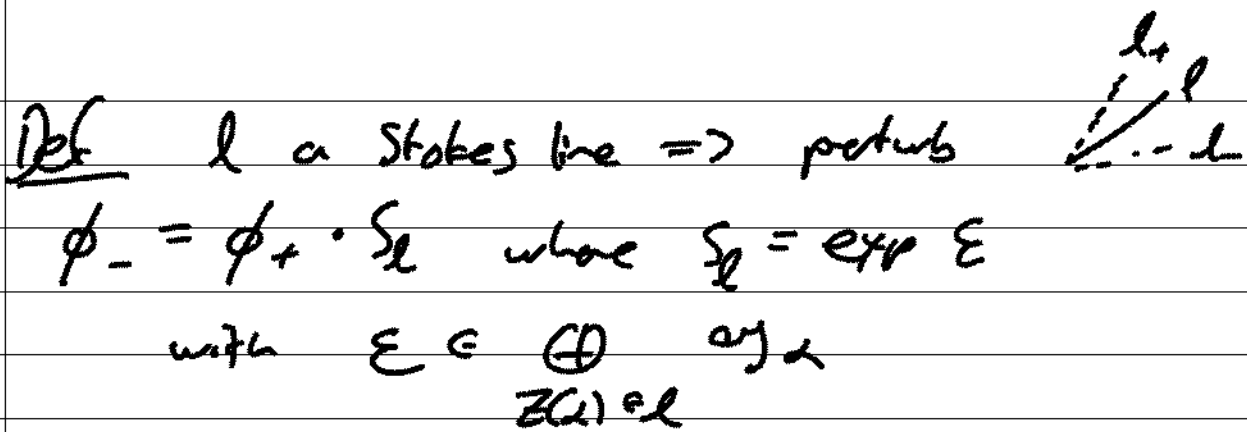 l₊
Def l a Stokes line => perturb l l₋
ϕ₋ = ϕ₊ · S_l where S_l = exp ε
with ε ∈ ⊕ 𝔤_α
Z(α) ∈ l